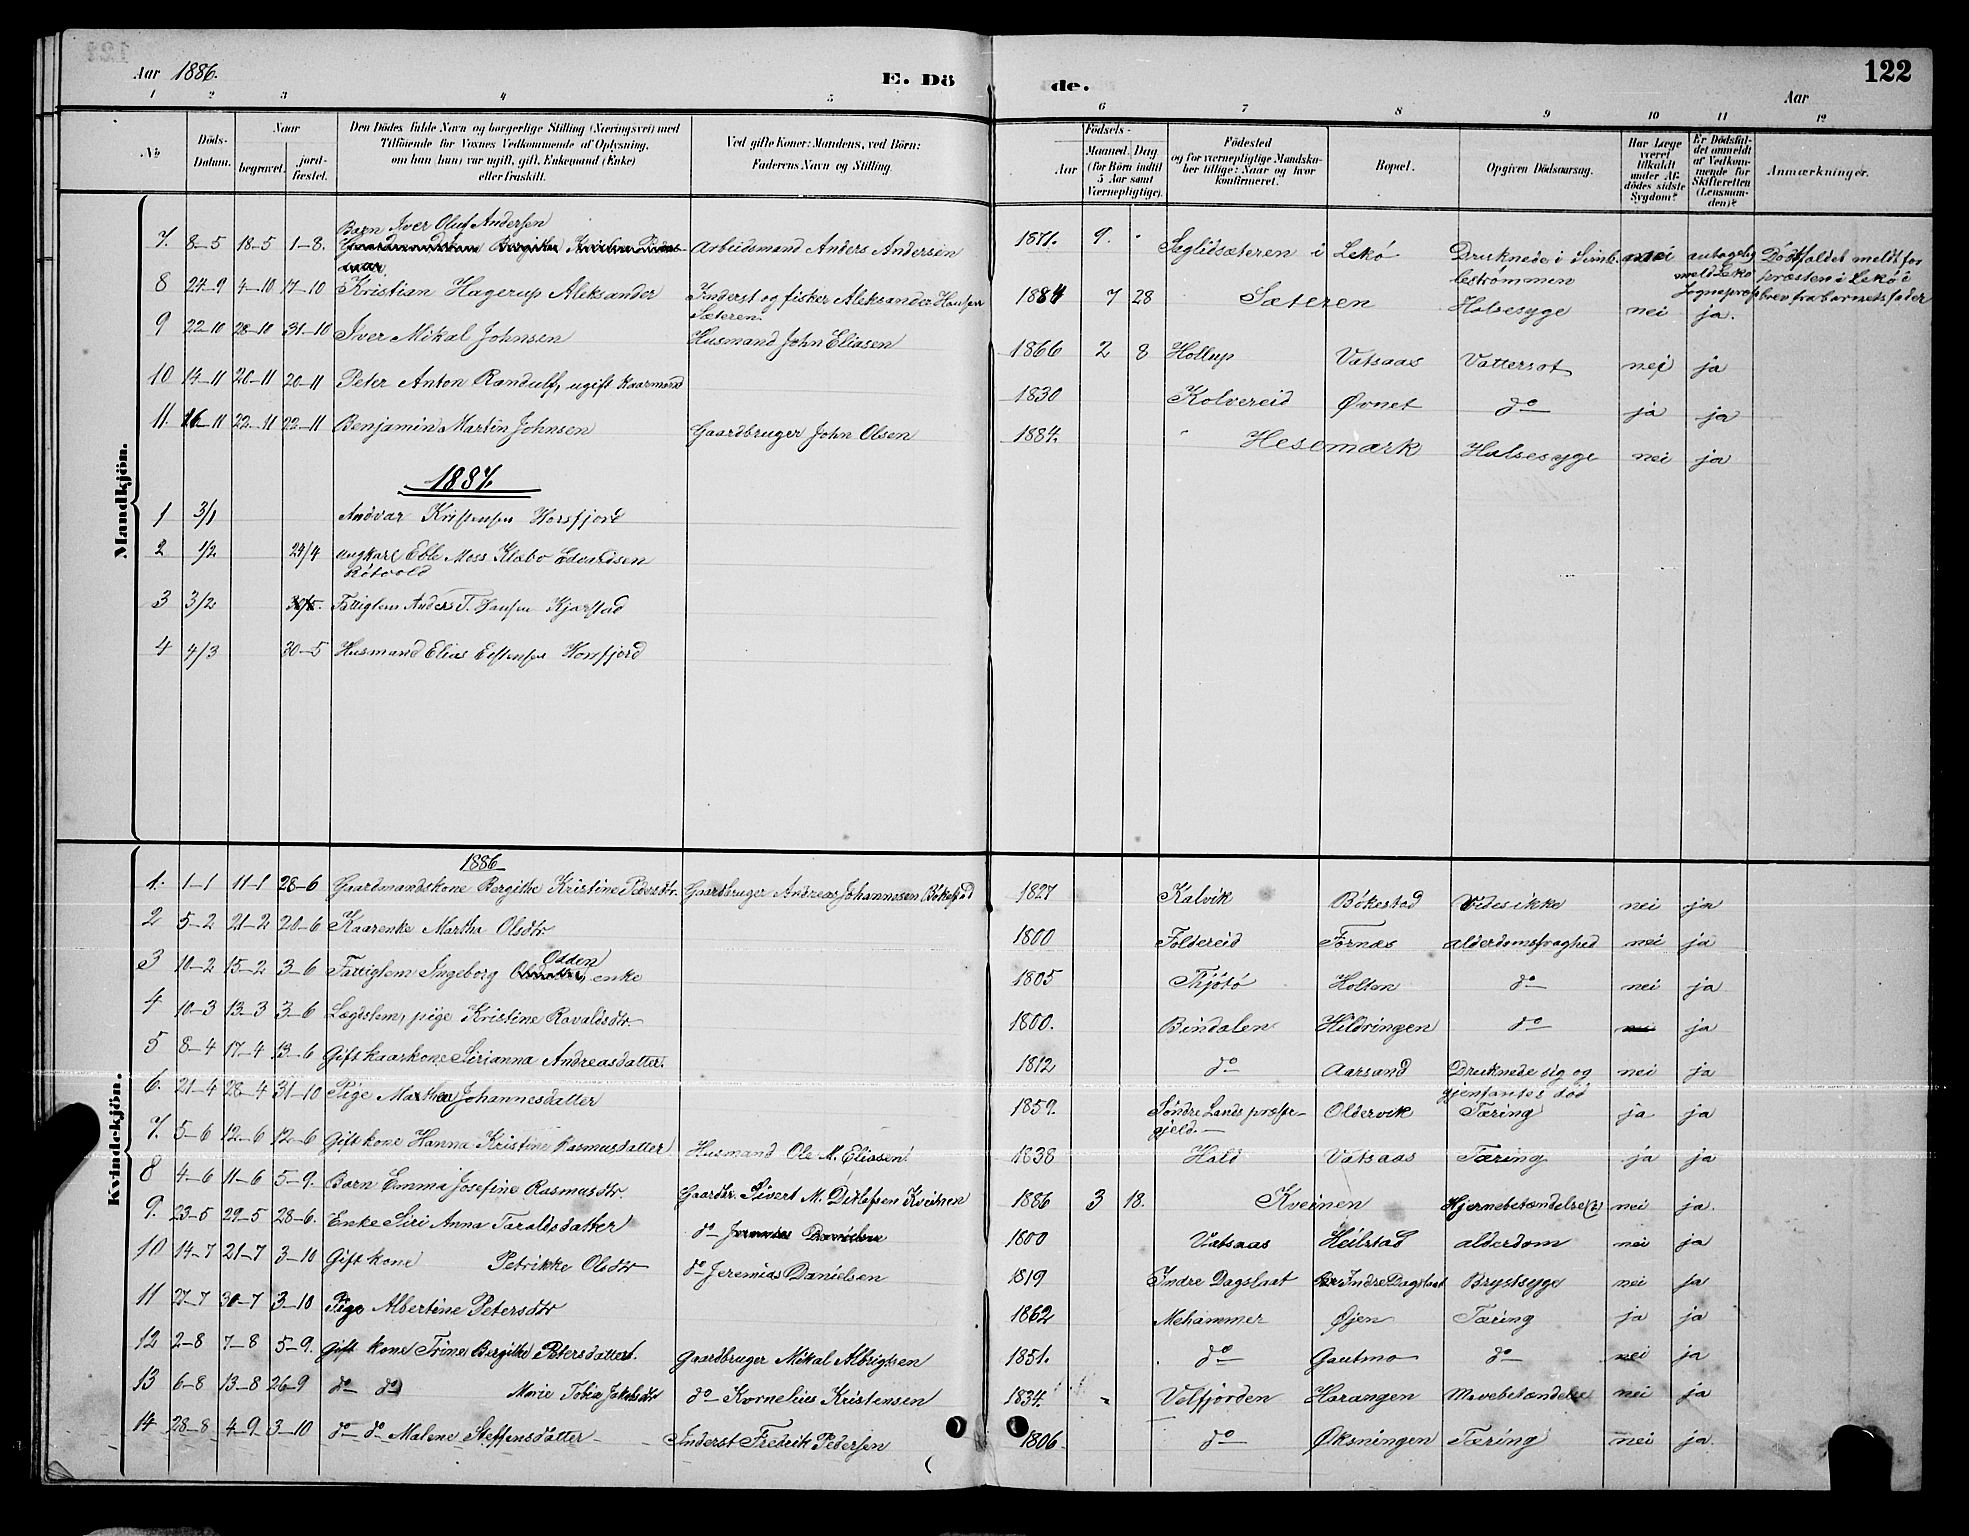 Aar 1886. E. Dö de. Aar 122
1 2 3 4 5 6 7 8 9 10 11 12
No Döds-Datum. Naar begravet. jord-fæstet. Den Dödes fulde Navn og borgerlige Stilling (Næringsvei) med Tilföiende för Voxnes Vedkommende af Oplysning, om han (hun) var ugift, gift, Enkemand (Enke) eller fraskilt. Ved gifte Koner: Mandens, ved Börn: Faderens Navn og Stilling. Födsels- Aar Maaned. Dag (for Börn indtil 5 Aar samt Værnepligtige). Födested og for værnepligtige Mandska-ber tillige: Naar og hvor konfirmeret. Bopæl. Opgiven Dödsaarsag. Har Læge været tilkaldt under Af-dödes sidste Sygdom? Er Dödsfal-det anmeldt af Vedkom-mende for Skifteretten (Lensman-den)? Anmærkninger.
Mandkjön.
7. 8–5 18–5 1–8. Barn Iver Oluf Andersen Arbeidsmand Anders Andersen 1871. 9. Sæglidsæteren i Lekö Druknede i Simle- nei antagelig Dödsfaldet meldt for
strømmen meldt Lekö præsten i Lekö i
sognepræst brev fra barnets fader
8 24–9 4–10 17–10 Kristian Hagerup Aleksander Inderst og fisker Aleksander Hansen 1884 7 28 Sæteren Halsesyge nei ja.
Sæteren.
9 22–10 28–10 31–10 Iver Mikal Johnsen Husmand John Eliasen 1866 2 8 Hollup Vatsaas Vattersot nei ja
10 14–11 20–11 20–11 Peter Anton Randulf, ugift Kaarmand 1830 Kolvereid Øvnet do ja ja
11. 16–11 22–11 22–11 Benjamin Martin Johnsen Gaardbruger John Olsen 1884. Hesemark Halsesyge nei ja
1887
1 3/1 Andvar Kristensen Horsfjord
2 1/2 29/4 ungkarl Edle Moss Klæbo Edvardsen
Røtvold
3 3/2 Fattiglem Anders T. Hansen Kjærstad
4 4/3 30–5 Husmand Elias Estensen Horsfjord
Kvindekjön.
1886
1. 1–1 11–1 28–6 Gaardmandskone Bergithe Kristine Pedersdtr. Gaardbruger Andreas Johannesen Bökestad 1827 Kalvik Bökestad Vides ikke nei ja
2 5–2 21–2 28–6 Kaarenke Martha Olsdtr. 1800 Foldereid Fornæs alderdomssvaghed nei ja
3 10–2 15–2 3–6 Fattiglem Ingeborg Odden enke 1805 Thjötö Holten do nei ja
4 10–3 13–3 3–6 Lægdslem, pige Kristine Ravaldsdtr. 1800. Bindalen Hildringen do nei ja
5 8–4 17–4 13–6 Gift kaarkone Sirianna Andreasdatter. 1812 do Aarsand Druknede sig og nei ja
gjenfantes död
6. 21–4 28–4 31–10 Pige Marthea Johannesdatter 1859. Søndre Lands præste- Oldervik Tæring ja ja
gjeld.
7. 5–6 12–6 12–6 Gift kone Hanna Kristine Rasmusdatter Husmand Ole M. Eliasen 1838 Hald Vatsaas Tæring ja ja
8 4–6 11–6 5–9. Barn Emma Josefine Rasmusdtr. Gaardbr. Sivert M. Ditlefsen Kveinen 1886 3 18. Kveinen Hjernebetændelse (?) nei ja.
9. 23–5 29–5 28–6. Enke Siri Anna Taraldsdatter do 1800 Vatsaas Heilstad alderdom nei ja
10 14–7 21–7 3–10 Gift kone Petrikke Olsdtr do Jeremias Danielsen 1819 Indre Dagslaat Indre Dagslaat Brystsyge nei ja
11 27–7 30–7 3–10 Pige Albertine Petersdtr 1862 Mehammer Øjen Tæring ja ja
12 2–8 7–8 5–9. Gift kone Trine Bergitte Petersdatter. Gaardbruger Mikal Albrigtsen 1851. do Gautmo do nei ja
13 6–8 13–8 26–9 do do Marie Tobia Jakobsdtr do Kornelius Kristensen 1834. Velfjorden Harangen Mavebetændelse nei ja
14 28–8 4–9 3–10 do do Malene Steffensdatter Inderst Fredrik Pedersen 1806. do Øksningen Tæring nei ja.